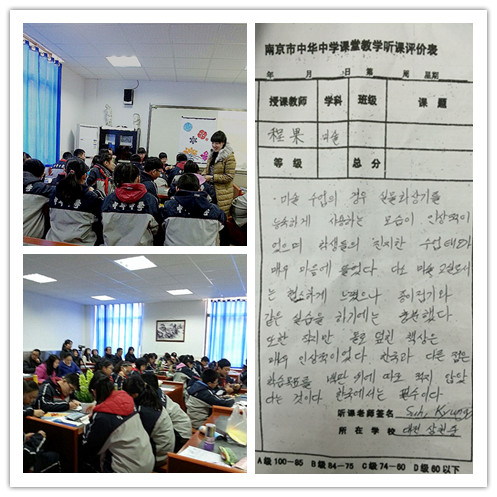 南京市中华中学课堂教学听课评价表
年 月 日 第 周 星期
授课教师 学科 班级 课题
程果 미술
等级 总分
· 미술 수업의 경우 실물화상기를
능숙하게 사용하는 모습이 인상적이
었으며 학생들의 진지한 수업태도가
매우 마음에 들었다. 다소 미술 교실로서
는 협소하게 느꼈으나 종이접기와
같은 실습을 하기에는 충분했다.
또한 작지만 꽃으로 덮인 책상은
매우 인상적이었다. 한국과 다른 점은
학습목표를 칠판 위에 따로 적지 않았
다는 것이다. 한국에서는 필수이다
听课老师签名 Suh, Kyung
所在学校 대전
A级100—85 B级84—75 C级74—60 D级60以下